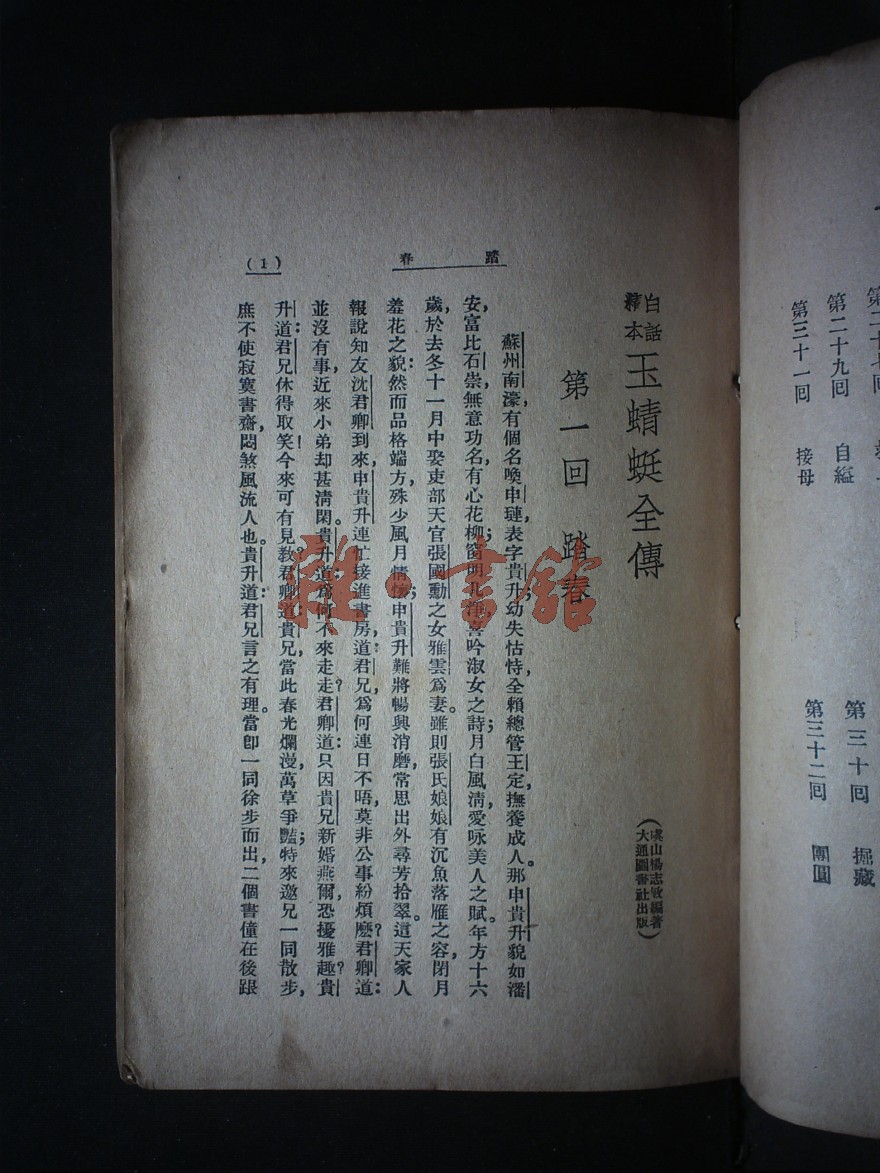 第二十九回　自縊
第三十回　掘藏
第三十一回　接母
第三十二回　團圓
白話繹本 玉蜻蜓全傳
（虞山楊志敏編著
大通圖書社出版）
第一回　踏春
蘇州南濠，有個名喚申璉，表字貴升，幼失怙恃，全賴總管王定，撫養成人。那申貴升貌如潘
安，富比石崇，無意功名，有心花柳；窗明几淨，喜吟淑女之詩；月白風清，愛咏美人之賦。年方十六
歲，於去冬十一月中娶吏部天官張國勳之女雅雲爲妻。雖則張氏娘娘有沉魚落雁之容，閉月
羞花之貌；然而品格端方，殊少風月情懷；申貴升難將暢興消磨，常思出外尋芳拾翠。這天家人
報說知友沈君卿到來，申貴升連忙接進書房，道：君兄，爲何連日不唔，莫非公事紛煩麽？君卿道：
並沒有事，近來小弟却甚淸閑。貴升道：爲何不來走走？君卿道：只因貴兄新婚燕爾，恐擾雅趣？貴
升道：君兄休得取笑！今來可有見教？君卿道：貴兄，當此春光爛漫，萬草爭豔；特來邀兄一同散步，
庶不使寂寞書齋，悶煞風流人也。貴升道：君兄言之有理。當卽一同徐步而出，二個書僮在後跟
踏春
（1）
雅·書館